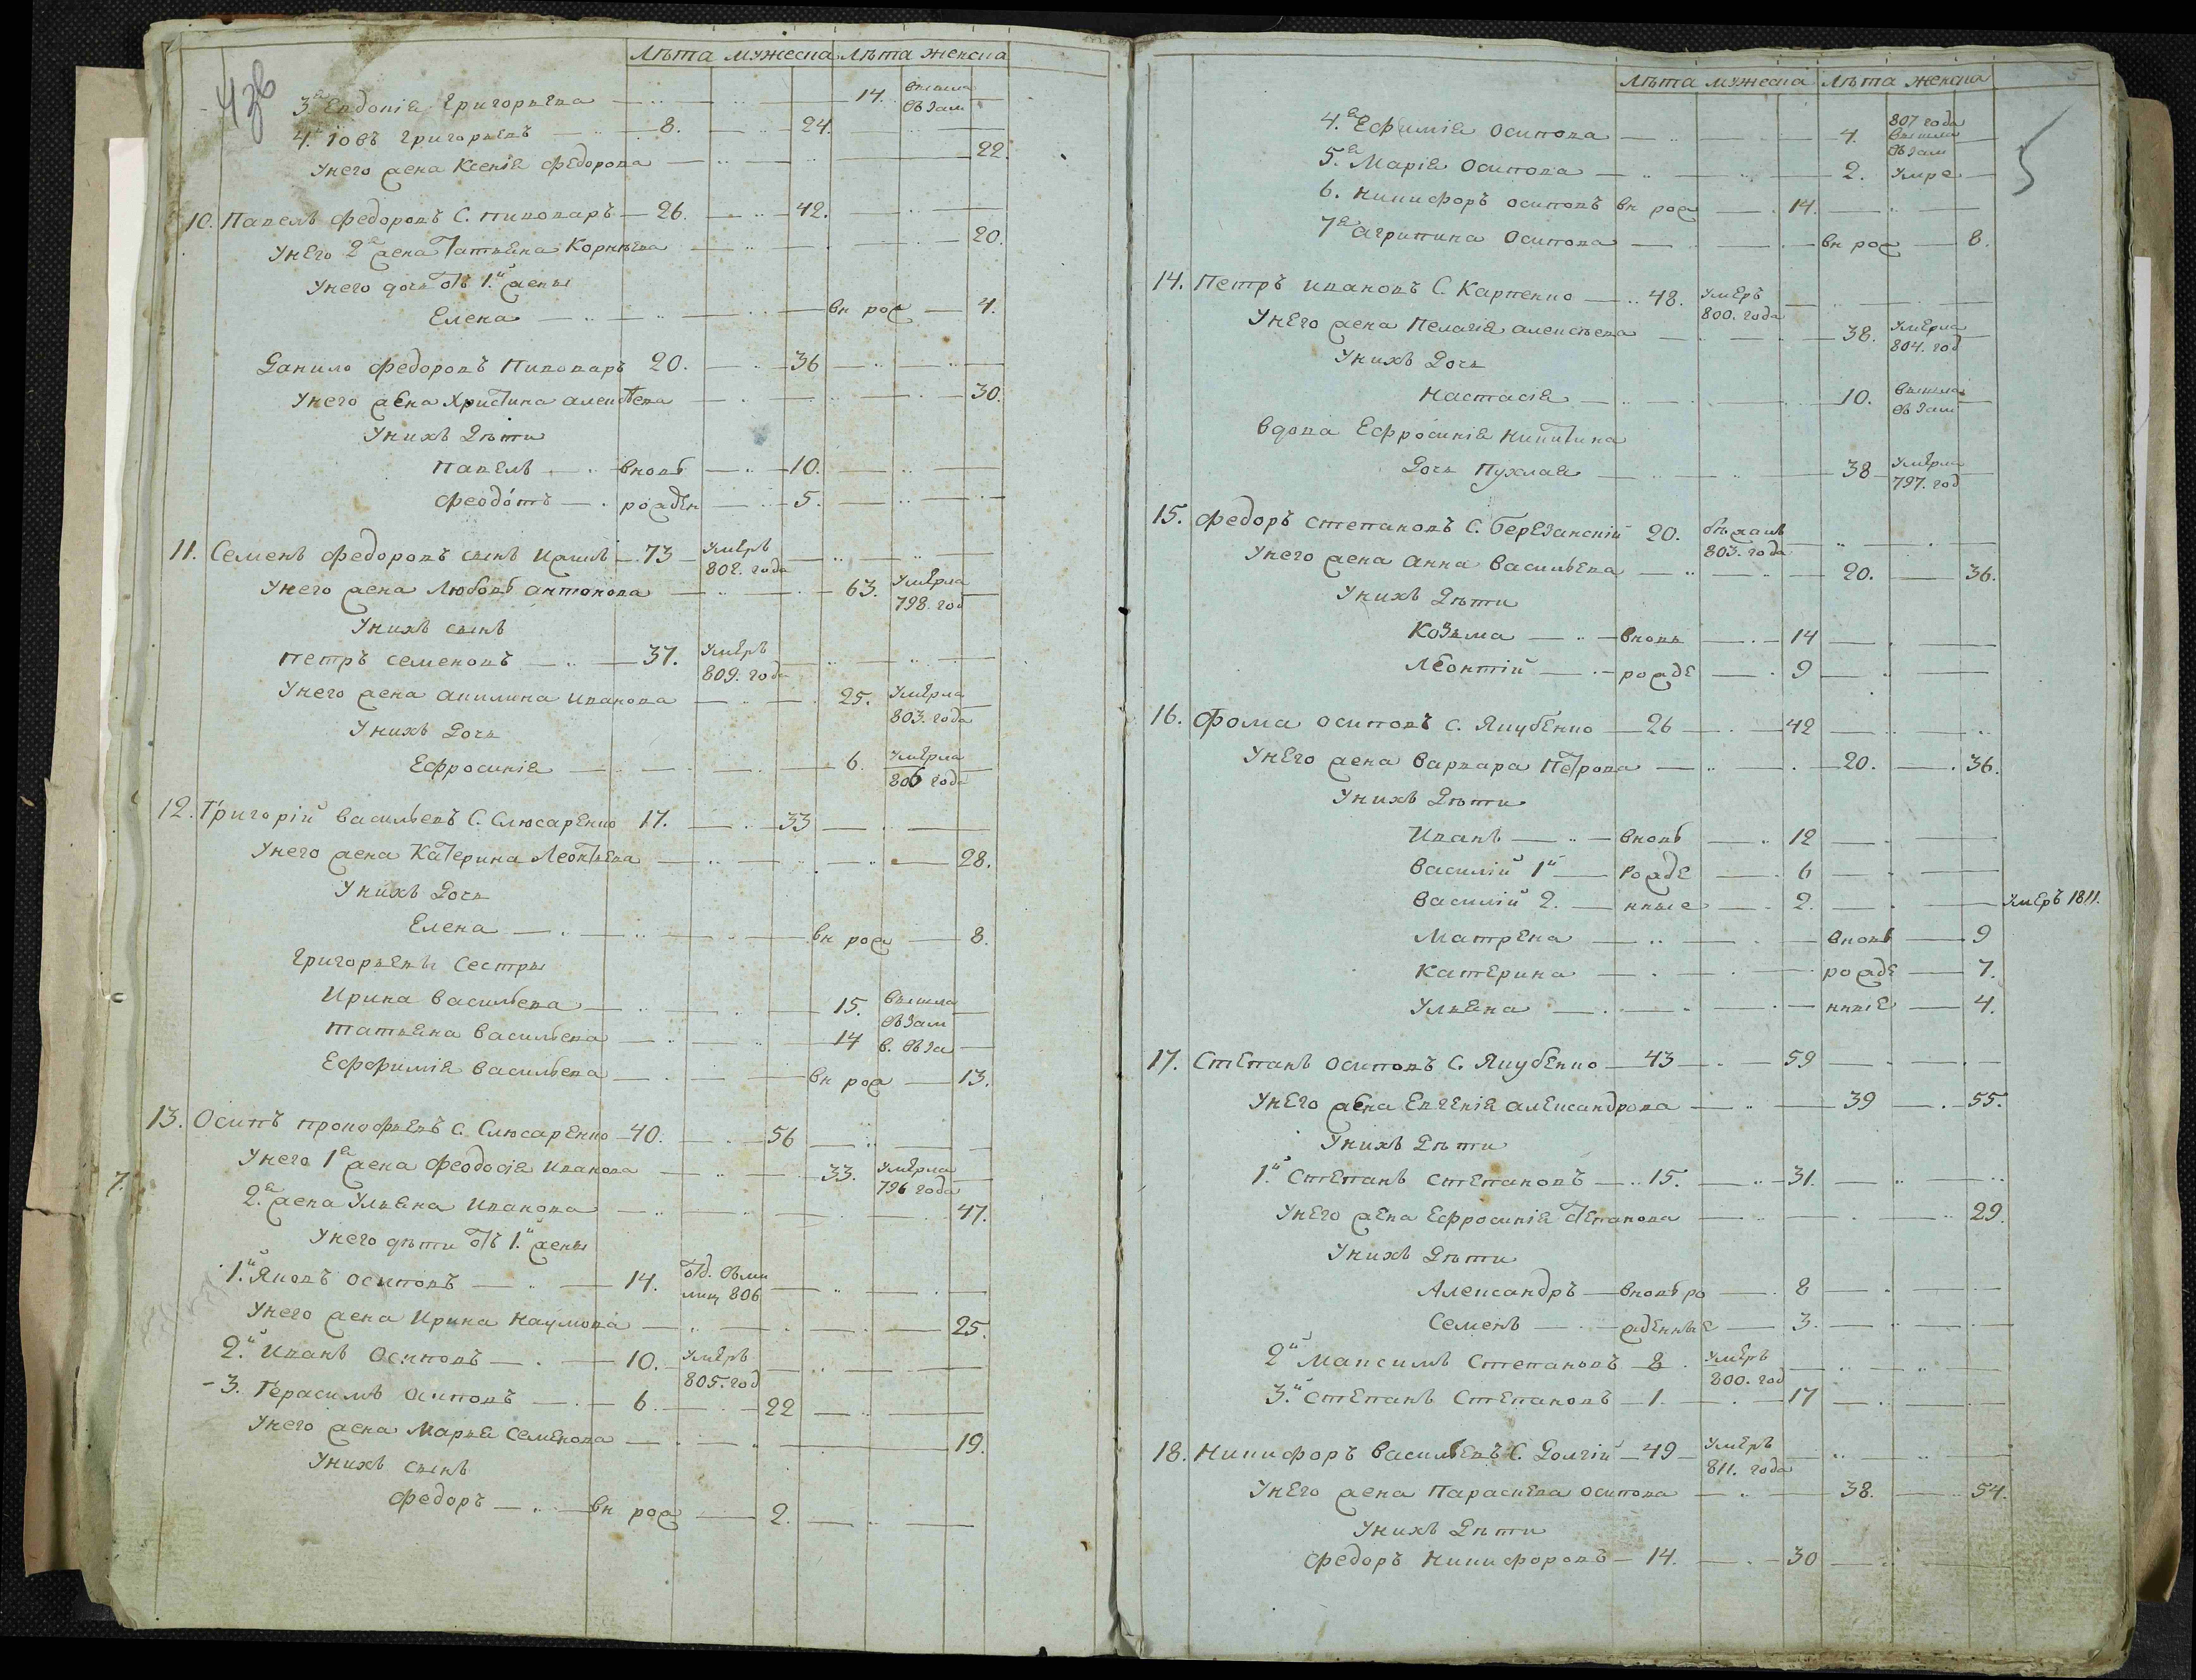 4 зв
Лѣта мужеска Лѣта женска
3.я Евдокія Григорьева 14. вышла въ зам
4. Іовъ Григорьевъ 8. 24.
У него жена Ксенія Федорова 22.
10. Павелъ Федоровъ С. Пивоваръ 26. 42.
У него 2я жена Татьяна Корнѣева 20.
У него дочь отъ 1.й жены
Елена вн рож 4.
Данило Федоровъ Пивоваръ 20. 36
У него жена Христина Алексѣева 30.
У нихъ Дѣти
Павелъ вновь 10.
Феодотъ рожден 5.
11. Семенъ Федоровъ сынъ 73 умеръ 802. года
У него жена Любовь Антонова 63. умерла 798. год
У нихъ сынъ
Петръ Семеновъ 37. умеръ 809. года
У него жена Акилина Иванова 25. умерла 803. года
У нихъ Дочь
Ефросинія 6. умерла 806 года
12. Григорій Васильевъ С. Слюсаренко 17. 33
У него жена Катерина Леонтьева 28.
У нихъ Дочь
Елена вн рож 8.
Григорьевы Сестры
Ирина Васильева 15. вышла въ зам
Татьяна Васильева 14 в. въ за
Ефимія Васильева вн рож 13.
13. Осипъ Прокофьевъ С. Слюсаренко 40. 56
У него 1я жена Феодосія Иванова 33. умерла 796 года
7.
2.я жена Ульяна Иванова 47.
У него дѣти отъ 1.й жены
1.й Яковъ Осиповъ 14. отд. въ ми лиц 806
У него жена Ирина Наумова 25.
2.й Иванъ Осиповъ 10. умеръ 805. год
3. Герасимъ Осиповъ 6. 22
У него жена Марья Семенова 19.
У нихъ сынъ
Федоръ вн рож 2.
5
Лѣта мужеска Лѣта женска
4.я Ефимія Осипова 4. 807 года вышла въ зам
5.я Марія Осипова 2. умре
6. Никифоръ Осиповъ вн рож 14.
7я Агрипина Осипова вн рож 8.
14. Петръ Ивановъ С. Карпенко 48. умеръ 800. года
У него жена Пелагія Алексѣева 38. умерла 804. год
У нихъ Дочь
Настасія 10. вышла въ зам
Вдова Ефросинія Никитина
Дочь Пухлая 38 умерла 797. год
15. Федоръ Степановъ С. Березанскій 20. бѣжалъ 803. года
У него жена Анна Васильева 20. 36.
У нихъ Дѣти
Козьма вновь 14
Леонтій рожде 9
16. Фома Осиповъ С. Якубенко 26 42
У него жена Варвара Петрова 20. 36.
У нихъ Дѣти
Иванъ вновь 12
Василій 1й рожде 6
Василій 2. нные 2. умеръ 1811.
Матрена вновь 9
Катерина рожде 7.
Ульяна нныя 4.
17. Степанъ Осиповъ С. Якубенко 43 59
У него жена Евгенія Александрова 39 55.
У нихъ Дѣти
1.й Степанъ Степановъ 15. 31.
У него жена Ефросинія Степанова 29.
У нихъ Дѣти
Александръ вновь ро 8
Семенъ жденные 3.
2й Максимъ Степановъ 8. умеръ 800. год
3.й Степанъ Степановъ 1. 17
18. Никифоръ Васильевъ С. Долгій 49 умеръ 811. года
У него жена Параскева Осипова 38. 54.
У нихъ Дѣти
Федоръ Никифоровъ 14. 30